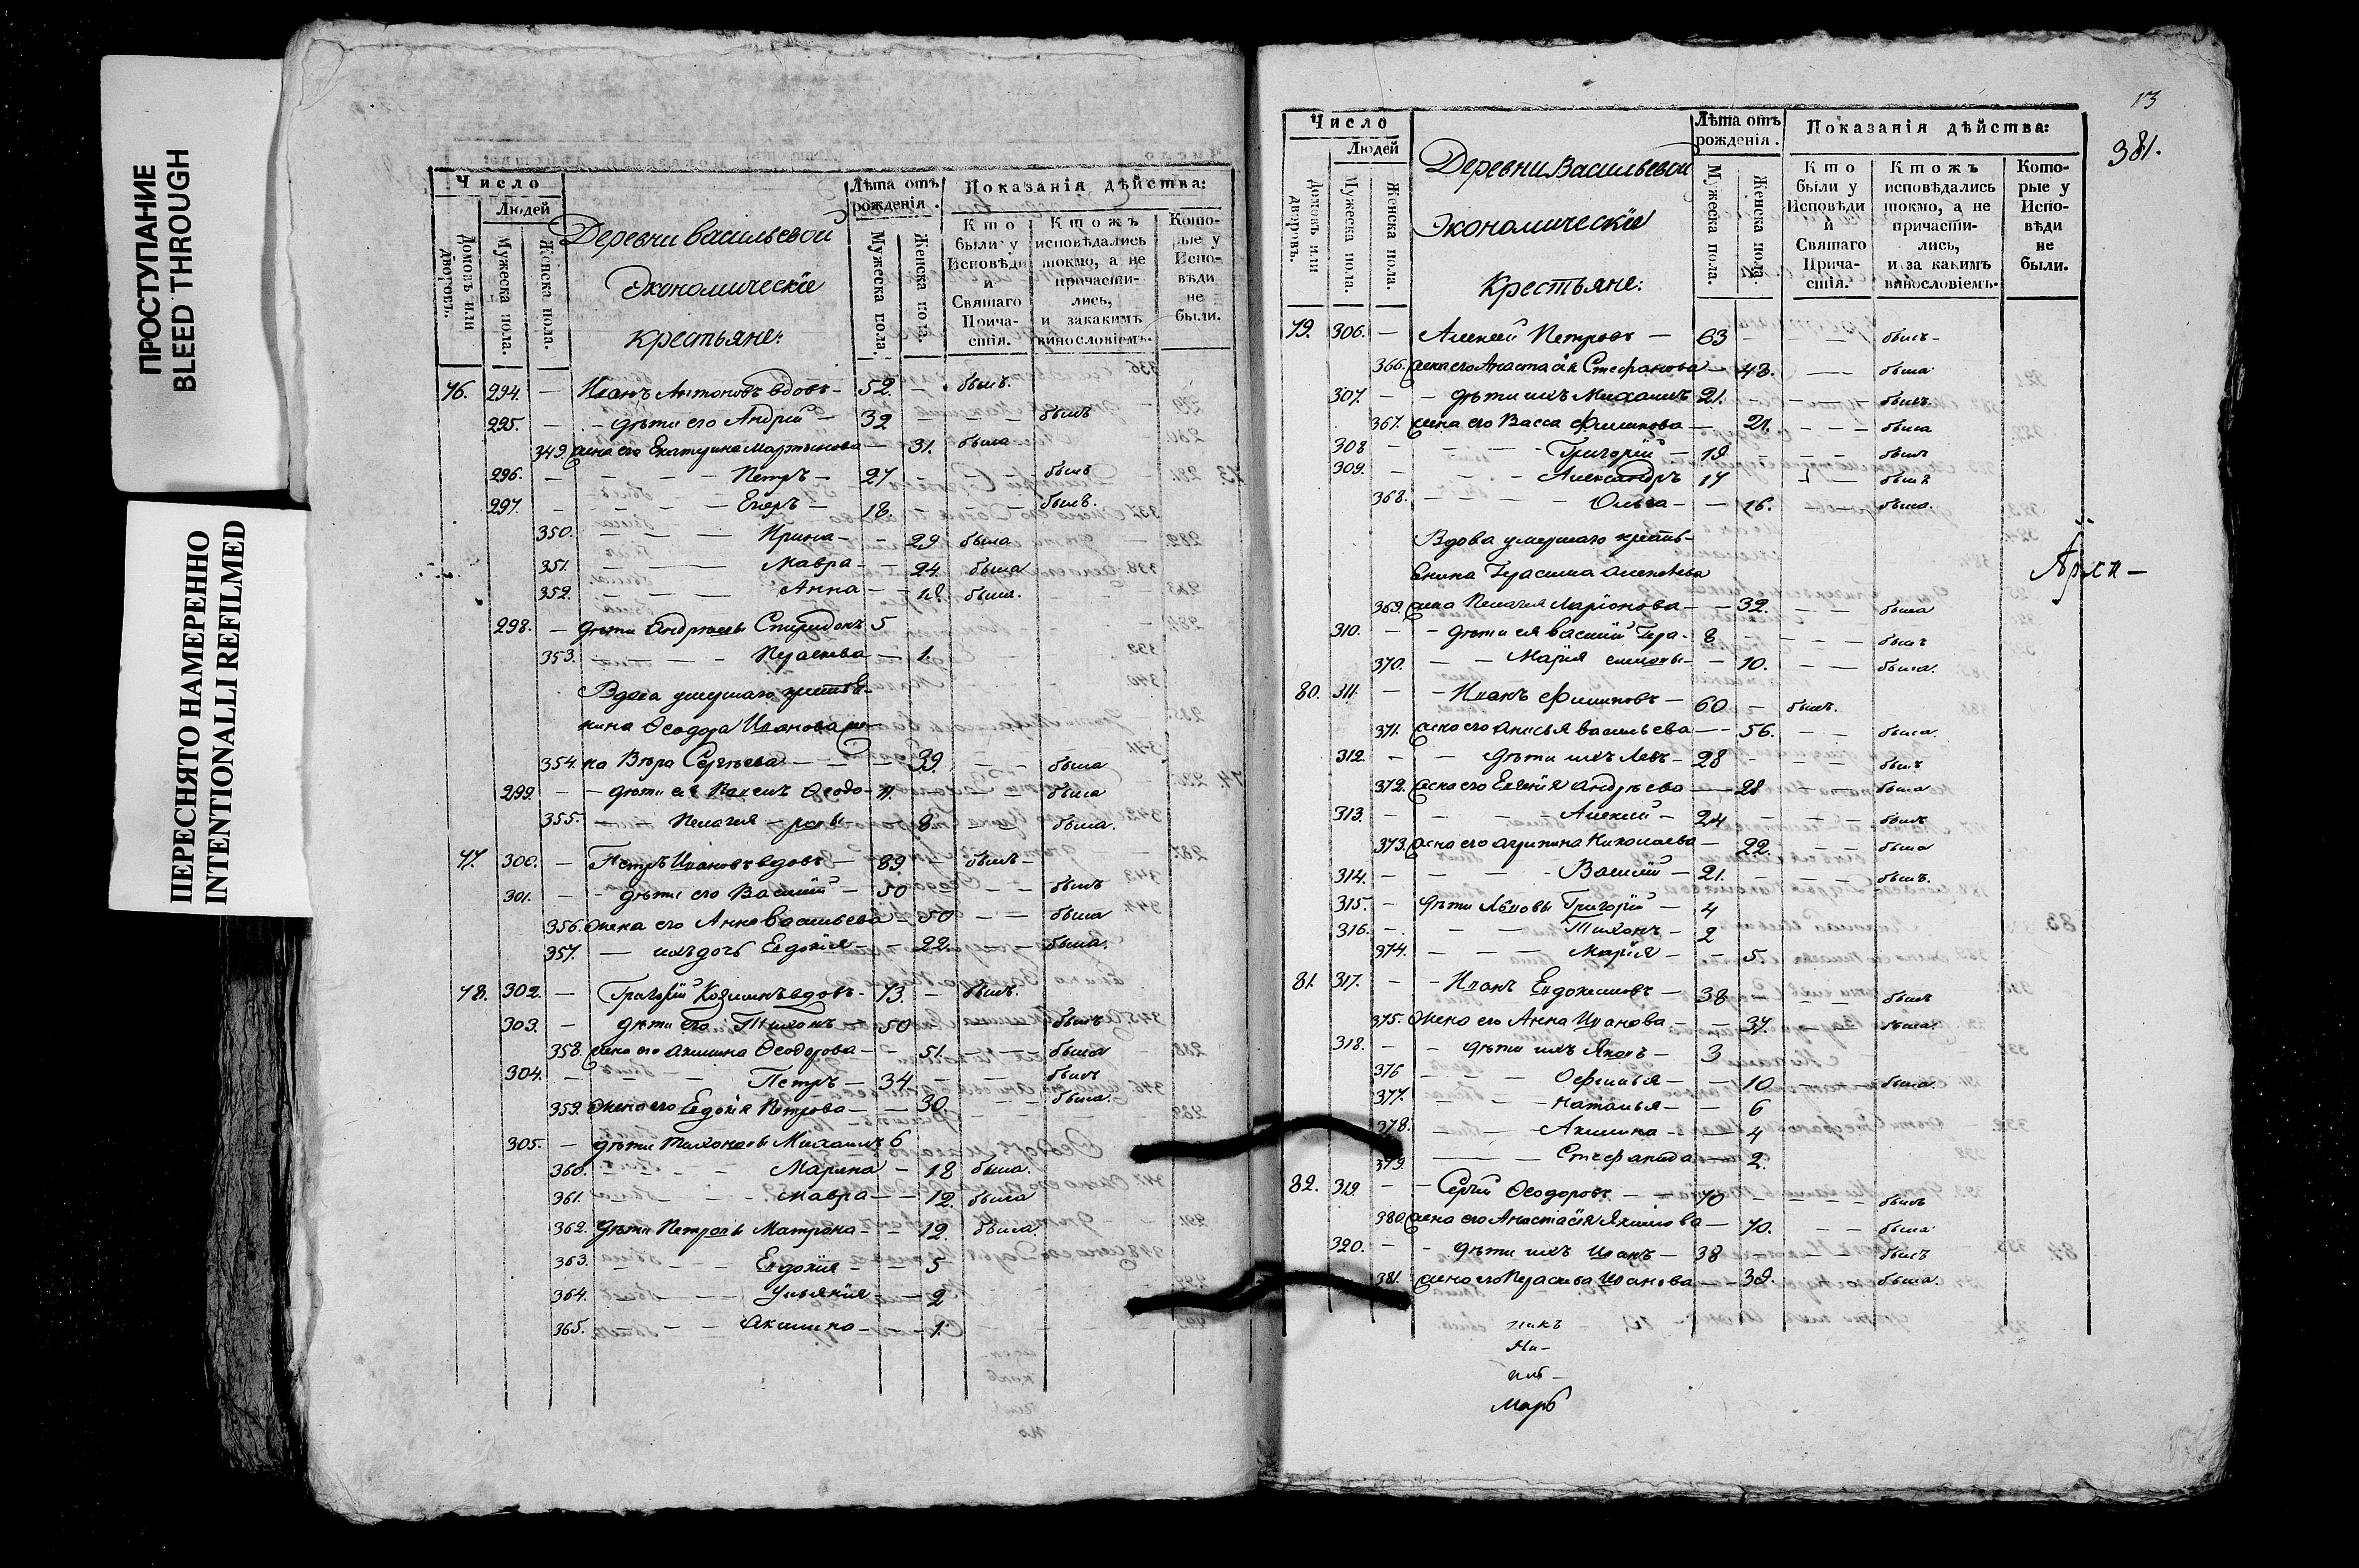 ПРОСТУПАНИЕ
BLEED THROUGH
ПЕРЕСНЯТО НАМЕРЕННО
INTENTIONALLI REFILMED
Число
Людей
Домовъ или дворовъ.
Мужеска пола.
Женска пола.
Деревни Васильевой
Экономическіе
крестьяне:
Лѣта отъ рожденія.
Мужеска пола.
Женска пола.
Показанія дѣйства:
Кто были у Исповѣди и Святаго Причастія.
Ктожъ исповѣдались токмо, а не причастились, и закакимъ винословіемъ.
Которые у Исповѣди не были.
76. 294. — Иванъ Антоновъ вдовъ — 52. — былъ.
295. — дѣти его Андрей — 32 — былъ
349. жена его Екатерина Мартынова — 31. была
296. — Петръ — 27 — былъ
297. — Егоръ — 18. — былъ.
350. — Ирина — 29 была
351. — Мавра — 24. была
352. — Анна — 18. была.
298. — дѣти Андреевы Спиридонъ 5
353. — Параскева — 1.
Вдова умершаго крестья-
нина Ѳеодора Иванова же-
354. на Вѣра Сергѣева — 39. — была
299. — дѣти ея Ѳеодо- 11. — была
355. — Пелагия — ровы — 8. — была.
77. 300. — Петръ Ивановъ вдовъ — 89. — былъ —
301. — дѣти его Василій — 50 — былъ
356. Жена его Анна Васильева — 50 — была
357. — ихъ дочь Евдокія — 22. — была.
78. 302. — Григорій Козминъ вдовъ — 73. — былъ.
303. — дѣти его Тихонъ — 50 — былъ
358. жена его Акилина Ѳеодорова — 51. — была
304. — Петръ — 34 — былъ
359. Жена его Евдокія Петрова — 30. — была.
305. — дѣти Тихоновы Михаилъ 6
360. — Марина — 18 была.
361. — Мавра — 12. была
362. дѣти Петровы Матрона — 12. была.
363. — Евдокия — 5
364. — Ульянія — 2
365. — Акилина — 1.
13
381.
Число
Людей
Домовъ или дворовъ.
Мужеска пола.
Женска пола.
Деревни Васильевой
Экономическіе
Крестьяне:
Лѣта отъ рожденія.
Мужеска пола.
Женска пола.
Показанія дѣйства:
Кто были у Исповѣди и Святаго Причастія.
Ктожъ исповѣдались токмо, а не причастились, и за какимъ винословіемъ.
Которые у Исповѣди не были.
79. 306. — Алексѣй Петровъ — 63 — былъ —
366. жена его Анастасія Стефанова — 48. — была
307. — дѣти ихъ Михаилъ 21. — былъ.
367. жена его Васса Филипова — 21. — была
308 — Григорій — 19 — былъ
309. — Александръ 17 — былъ
368. — Ольга — 16. — была.
Вдова умершаго кресть-
янина Герасима Алексѣева
369. жена Пелагея Ларіонова — 32. — была
310. — дѣти ея Василій Гера- 8 — былъ
370. — Марія симовы — 10. — была.
80. 311. — Иванъ Филиповъ — 60 — былъ.
371. жена его Анисья Васильева — 56. — была.
312. — дѣти ихъ Левъ — 28 — былъ
372. жена его Евгенія Андрѣева — 28 — была
313. — Алексѣй — 24 — былъ
373. жена его Агрипина Николаева — 22. — была
314. — Василій — 21. — былъ.
315. — дѣти Львовы Григорій — 4
316. — Тихонъ — 2
374. — Марія — 5.
81. 317. — Иванъ Евдокимовъ — 38 — былъ
375. Жена его Анна Иванова — 37. — была
318. — дѣти ихъ Яковъ — 3
376 — Офимья — 10 — была
377. — Наталья — 6
378. — Акилина — 4
379. — Стефанида — 2.
82. 319. — Сергій Ѳеодоровъ — 70 — былъ
380. жена его Анастасія Якимова — 70. — была
320. — дѣти ихъ Иванъ — 38 — былъ
381. жена его Параскева Иванова — 39. — была.
Архи —